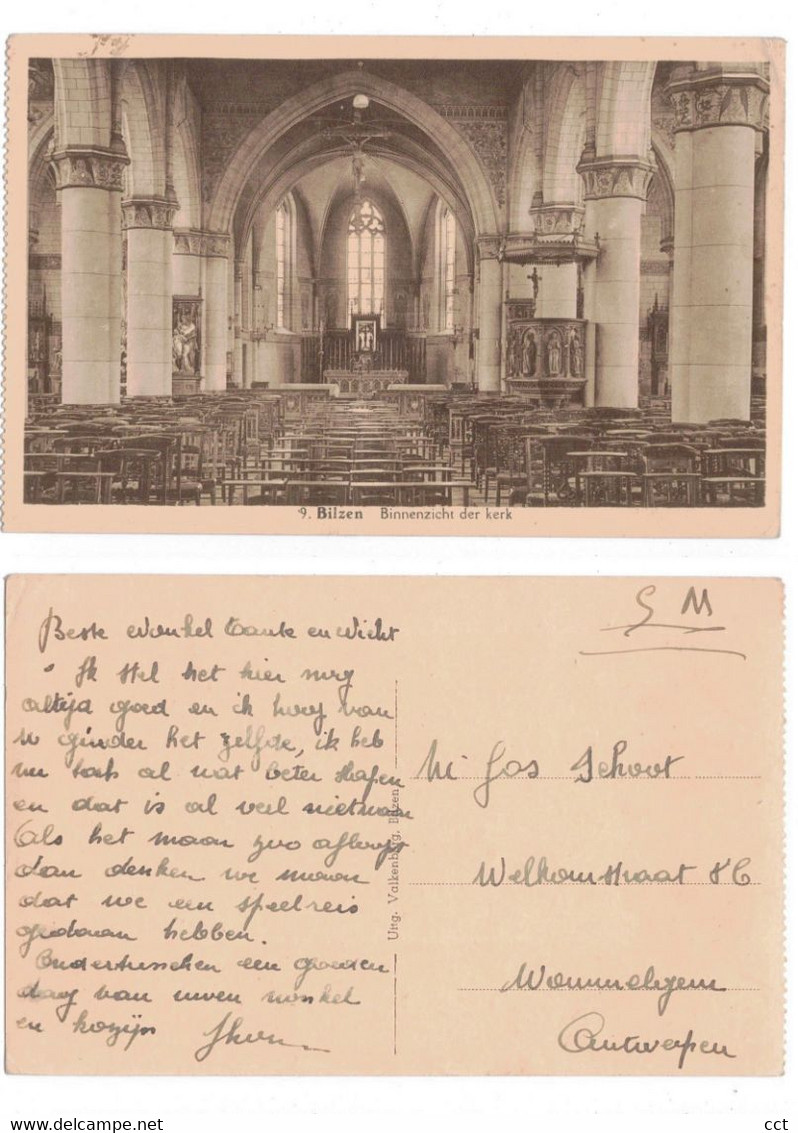 9. Bilzen Binnenzicht der kerk
S M
Beste Nonkel tante en Wicht
Ik stel het hier nog
altijd goed en ik hoop van
u ginder het zelfde, ik heb
nu toch al wat beter slapen
en dat is al veil nietwaar
Als het maar zoo afloopt
dan denken we maar
dat we een speelreis
gedaan hebben.
Ondertusschen een goeden
dag van uwen nonkel
en kozijn
Uitg. Valkenborg, Bilzen
Mr Jos Schoot
Welkomstraat 86
Wommelgem
Antwerpen
delcampe.net
cct